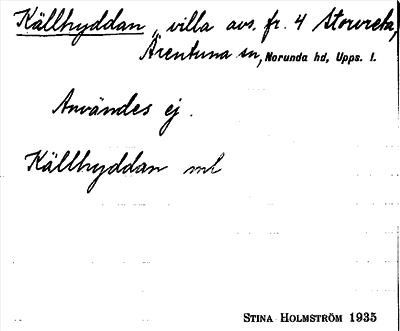 Källhyddan, villa avs. fr. 4 Storvreta,
Ärentuna sn, Norunda hd, Upps. l.
Användes ej.
Källhyddan ml
STINA HOLMSTRÖM 1935